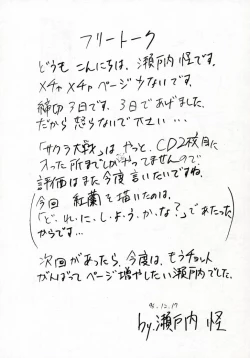 フリートーク
どうも こんにちは、瀬戸内 怪です。
メチャメチャ ページ少ないです。
締切3日です。3日であげました。
だから 怒らないで下さい…
「サクラ大戦」は やっと、CD2枚目に
入った所までしかやってませんので
評価はまた今度 言いたいですね。
今回 紅蘭 を描いたのは、
「ど.れ.に.し.よ.う.か.な.?」であたった
からです…
次回があったら、今度は、もうチョット
がんばって ページ増やしたい瀬戸内でした。
96.12.17
by.瀬戸内 怪